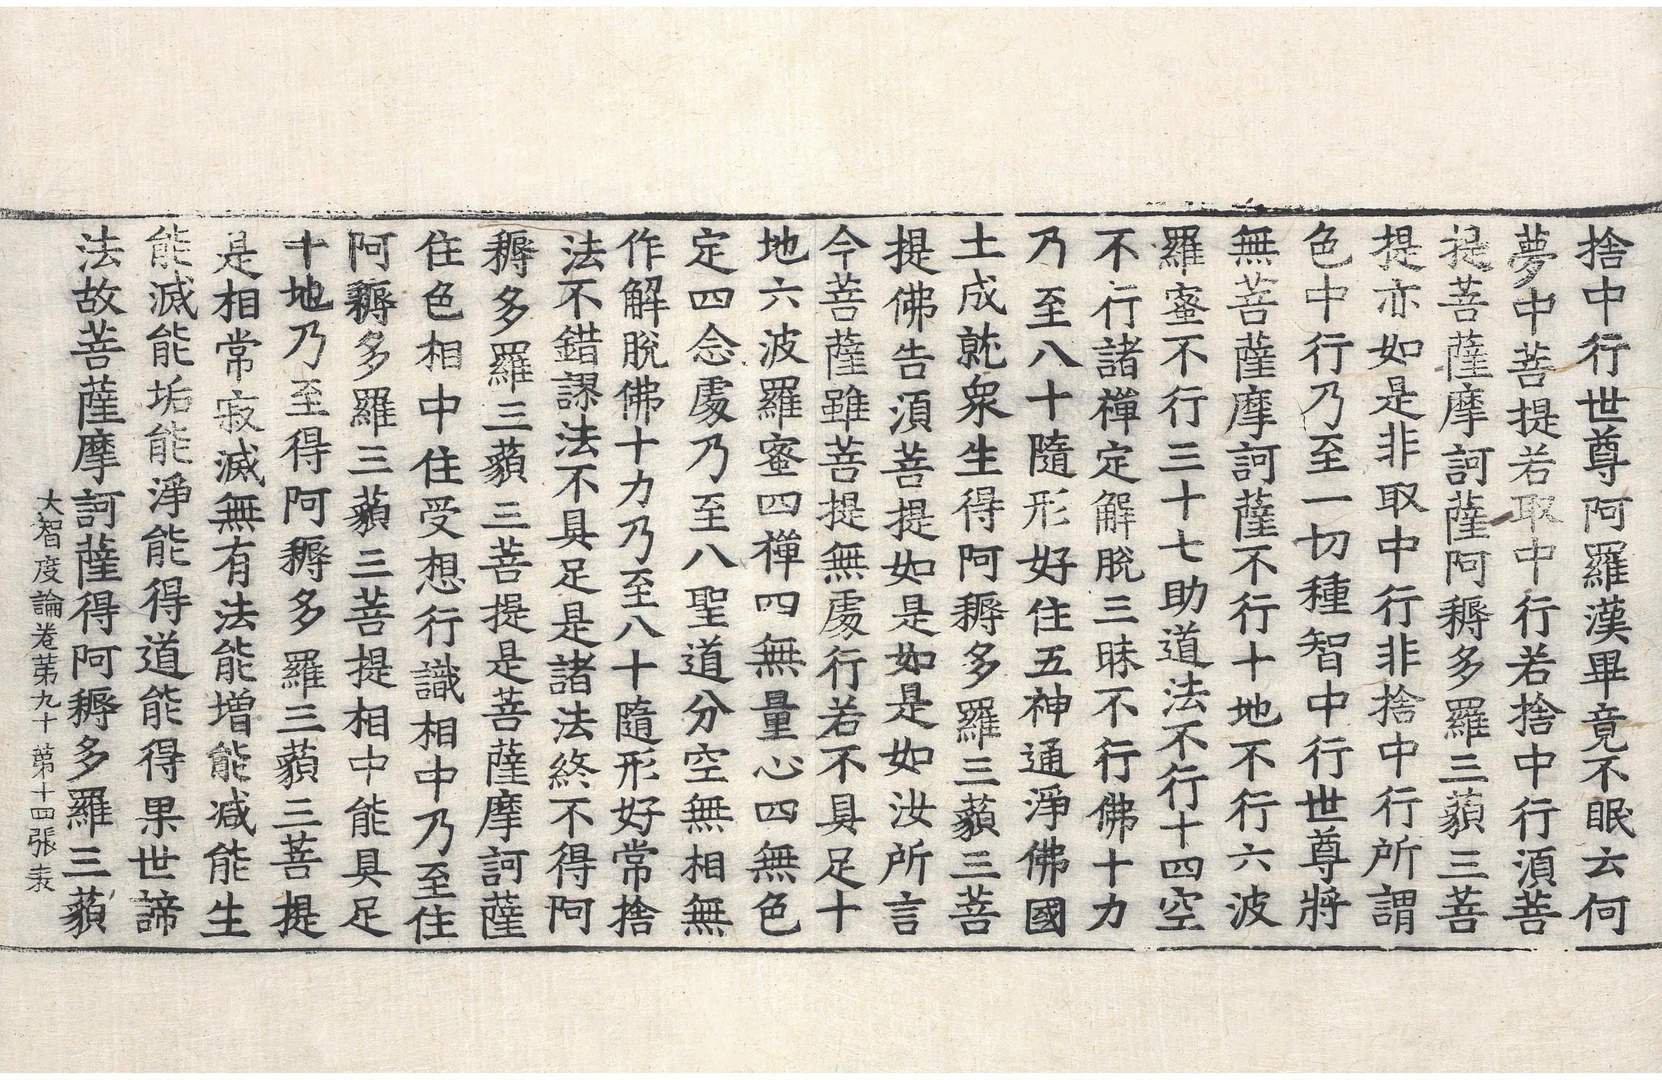 捨中行世尊阿羅漢畢竟不眠云何
夢中菩提若取中行若捨中行湏菩
提菩薩摩訶薩阿耨多羅三藐三菩
提亦如是非取中行非捨中行所謂
色中行乃至一切種智中行世尊將
無菩薩摩訶薩不行十地不行六波
羅蜜不行三十七助道法不行十四空
不行諸禪定解脫三昧不行佛十力
乃至八十隨形好住五神通淨佛國
土成就衆生得阿耨多羅三藐三菩
提佛告湏菩提如是如是如汝所言
今菩薩雖菩提無處行若不具足十
地六波羅蜜四禪四無量心四無色
定四念處乃至八聖道分空無相無
作解脫佛十力乃至八十隨形好常捨
法不錯謬法不具足是諸法終不得阿
耨多羅三藐三菩提是菩薩摩訶薩
住色相中住受想行識相中乃至住
阿耨多羅三藐三菩提相中能具足
十地乃至得阿耨多羅三藐三菩提
是相常寂滅無有法能增能減能生
能滅能垢能淨能得道能得果世諦
法故菩薩摩訶薩得阿耨多羅三藐
大智度論卷苐九十 第十四張